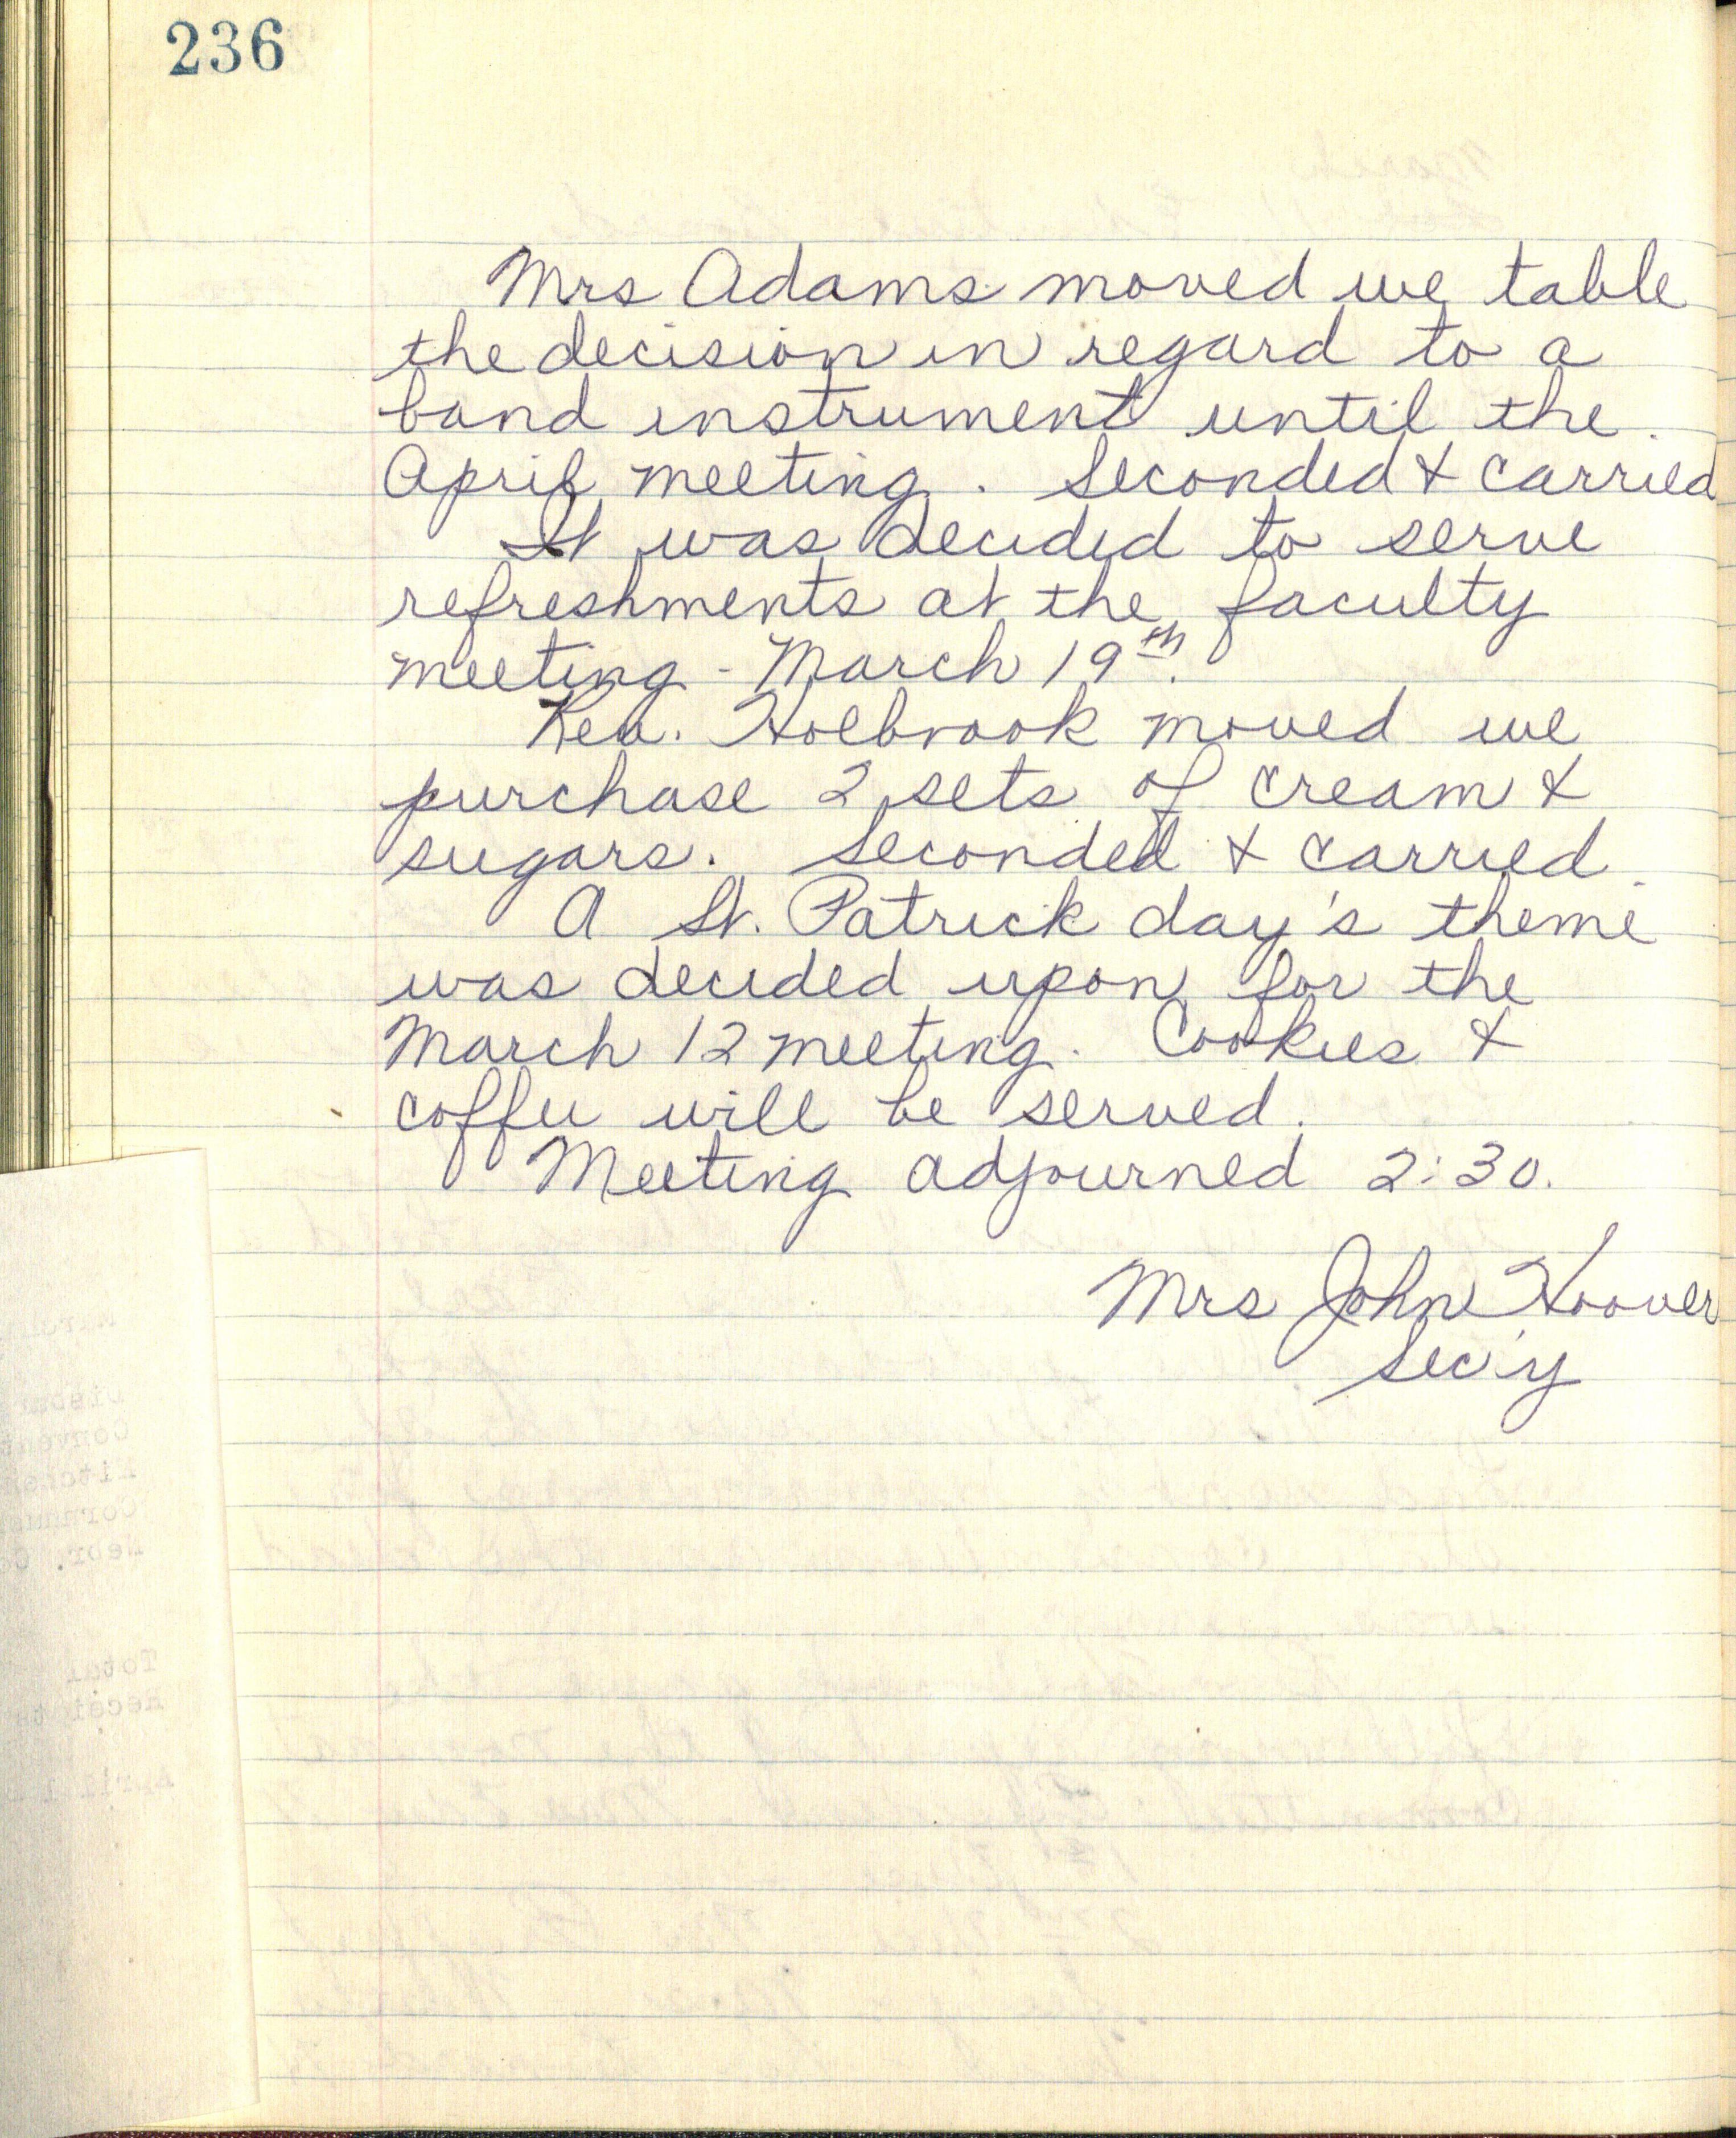 236
Mrs Adams moved we table
the decision in regard to a
band instrument until the
April meeting. Seconded & carried
It was decided to serve
refreshments at the faculty
meeting - March 19th.
Rev. Holbrook moved we
purchase 2 sets of cream &
sugars. Seconded & carried.
A St. Patrick day's theme
was decided upon for the
March 12 meeting. Cookies &
coffee will be served.
Meeting adjourned 2:30.
Mrs John Hoover
Sec'y
Total
Receipts
April 1